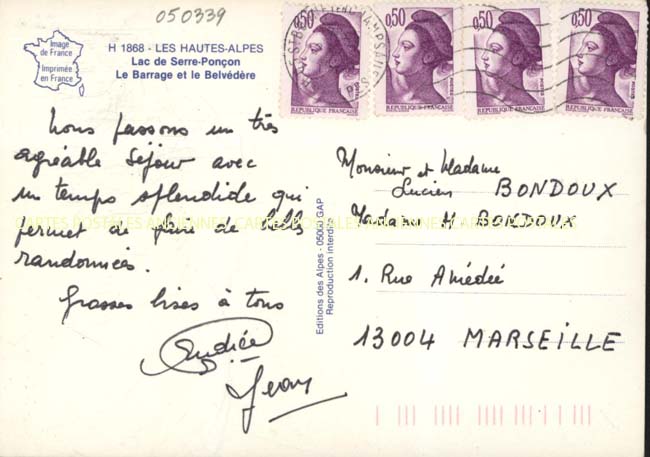 050339
Image
de France
Imprimée
en France
H 1868 - LES HAUTES-ALPES
Lac de Serre-Ponçon
Le Barrage et le Belvédère
0,50 0,50 0,50 0,50
REPUBLIQUE FRANÇAISE REPUBLIQUE FRANÇAISE REPUBLIQUE FRANÇAISE REPUBLIQUE FRANÇAISE
Nous passons un très
agréable séjour avec
un temps splendide qui
permet de faire de belles
randonnées.
Grosses bises à tous
Andrée
Jean
Editions des Alpes - 05000 GAP
Reproduction interdite
Monsieur et Madame
Lucien BONDOUX
Madame H BONDOUX
1. Rue Amédée
13004 MARSEILLE
CARTES POSTALES ANCIENNES